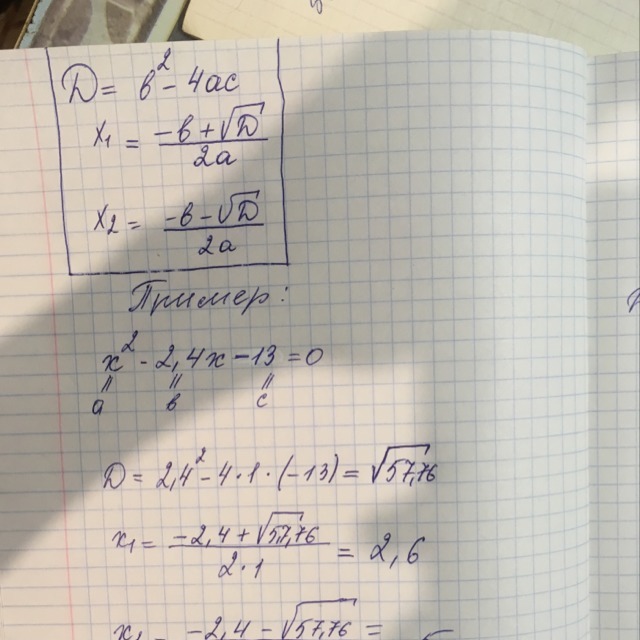 D = b² - 4ac
x₁ = (-b + √D) / 2a
x₂ = (-b - √D) / 2a
Пример:
x² - 2,4x - 13 = 0
a b c
D = 2,4² - 4·1·(-13) = √57,76
x₁ = (-2,4 + √57,76) / 2·1 = 2,6
-2,4 - √57,76 =